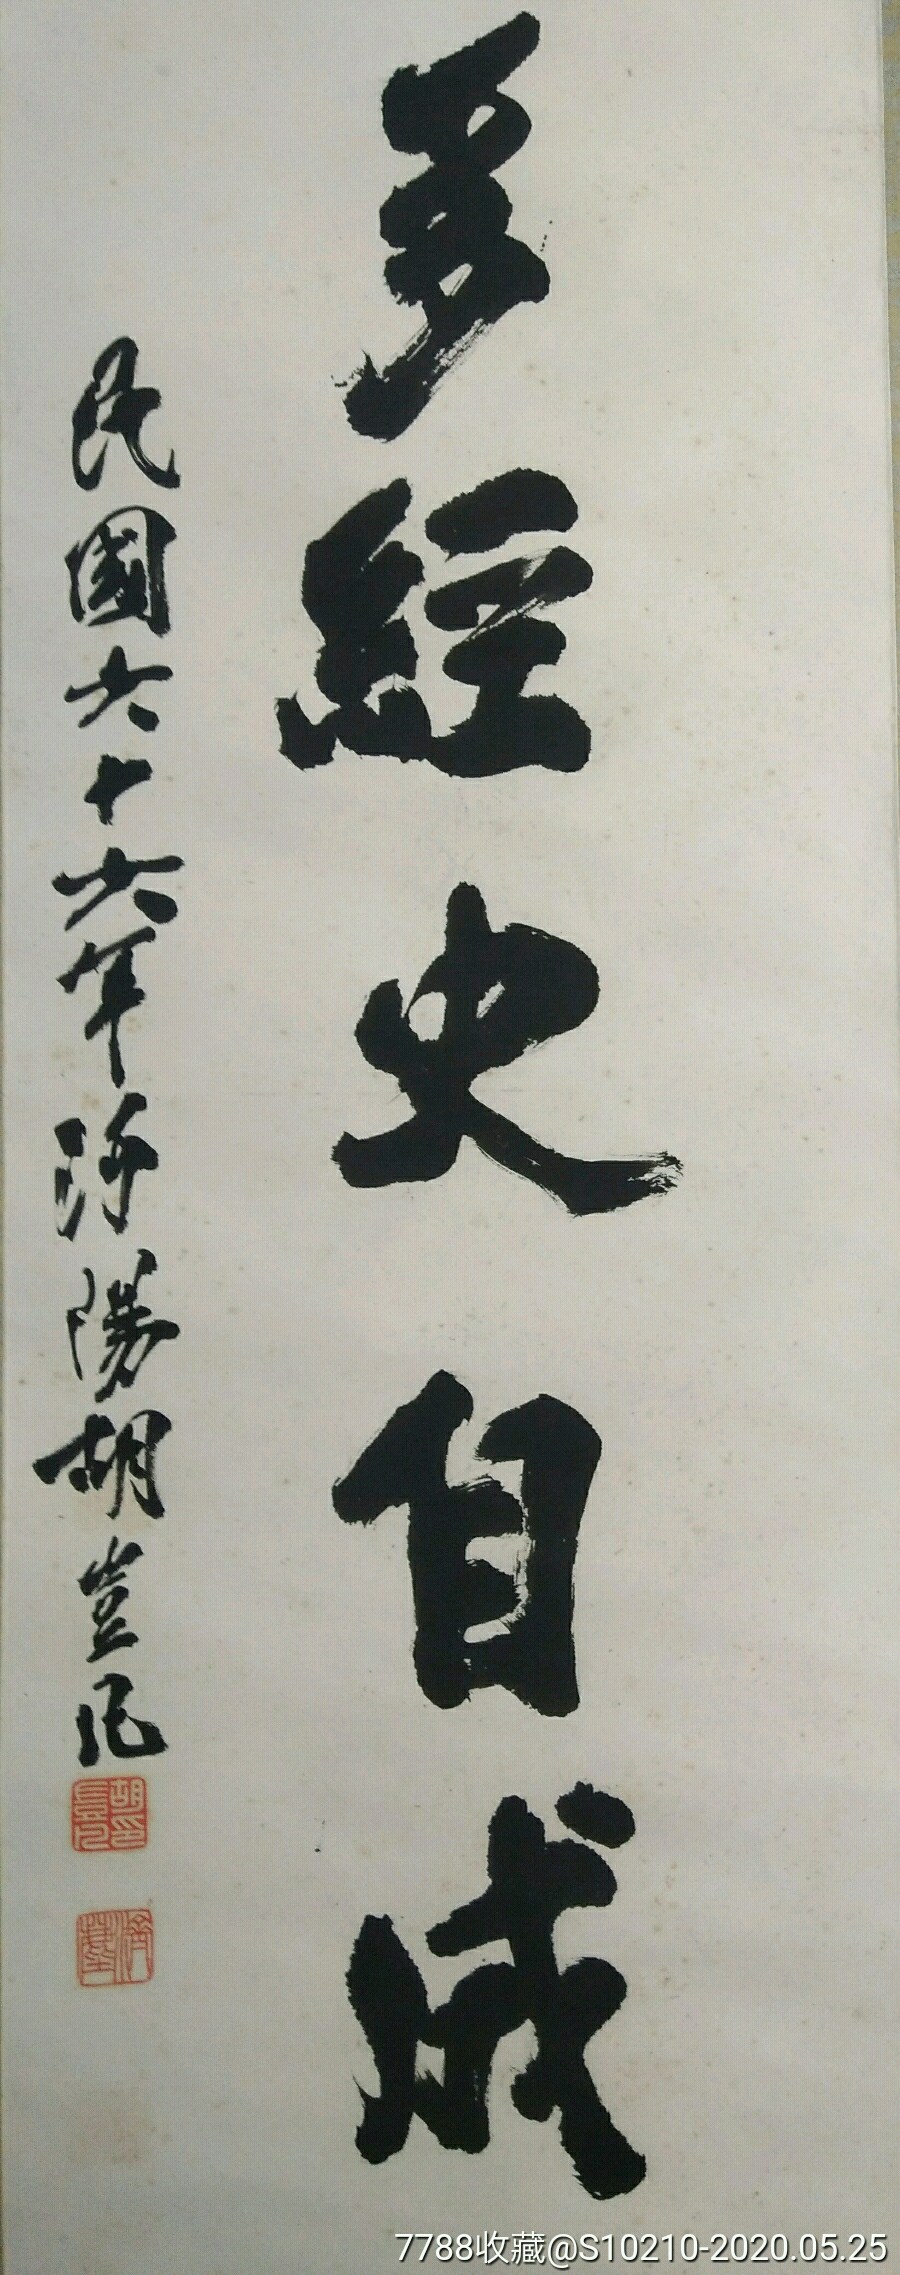 多經史自成
民國六十六年沔陽胡豈凡
胡印豈凡
7788收藏@S10210-2020.05.25